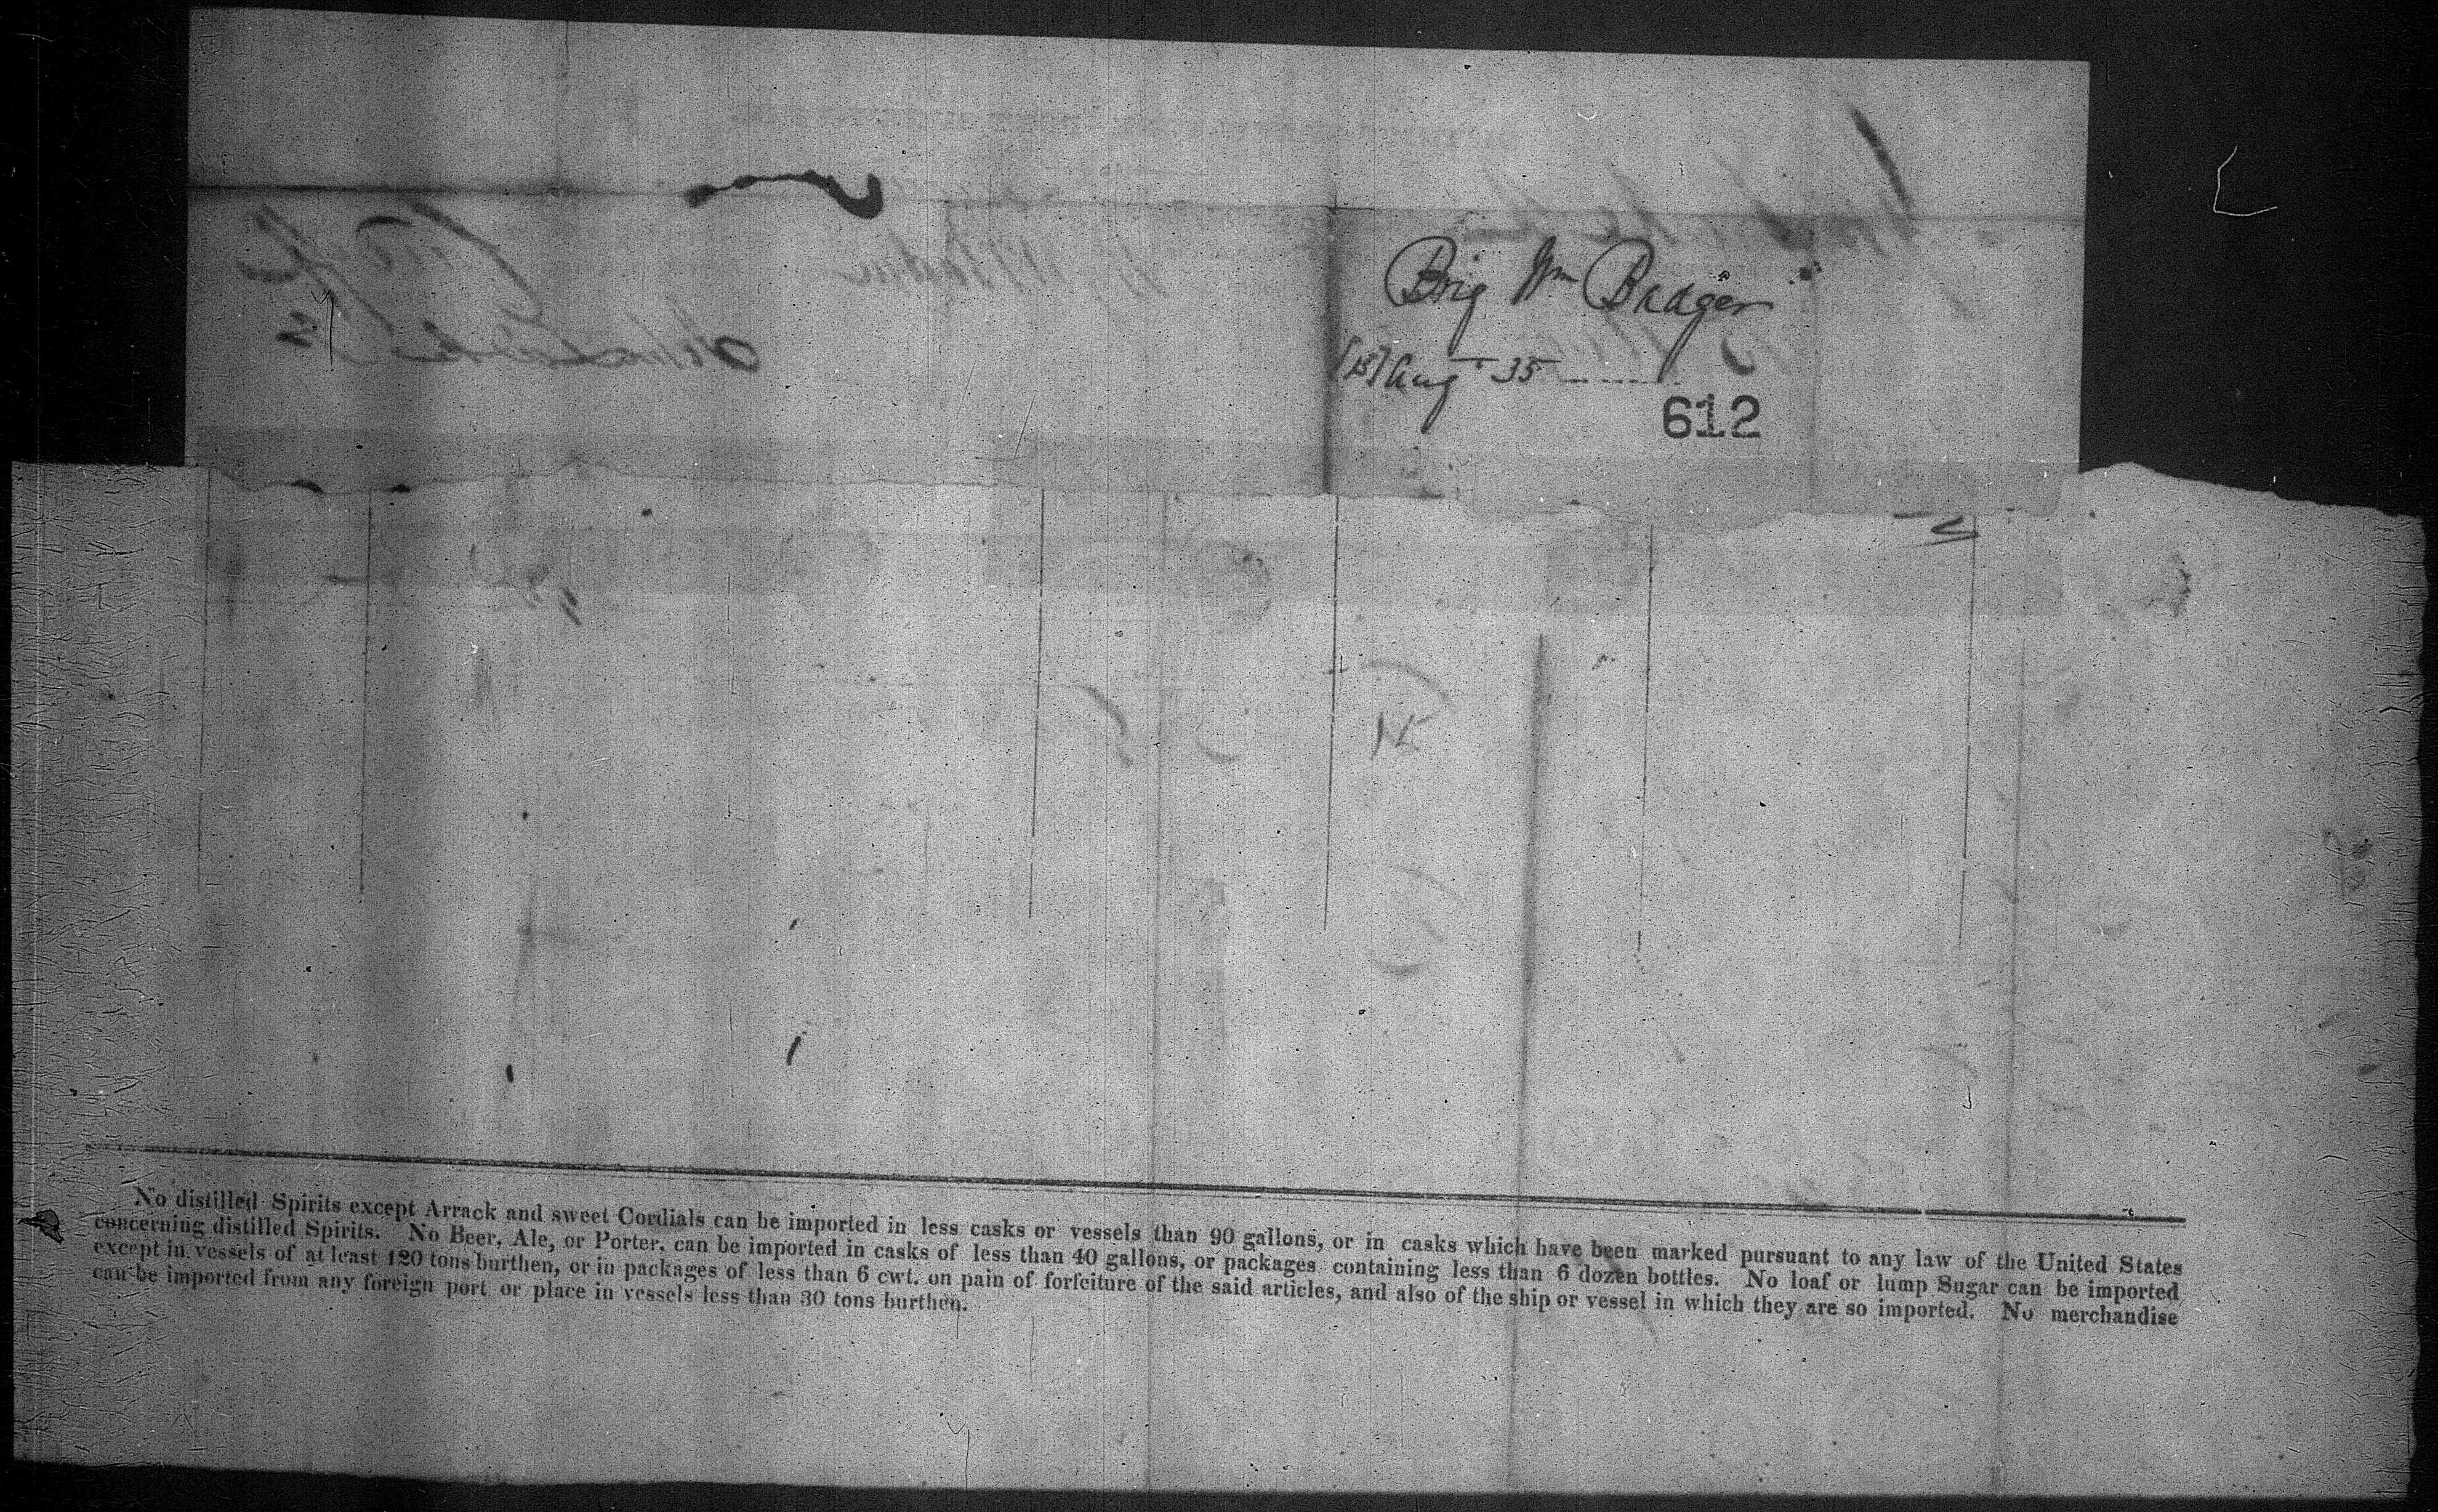 Brig Wm Badger
[15] Aug 35
612
No distilled Spirits except Arrack and sweet Cordials can be imported in less casks or vessels than 90 gallons, or in casks which have been marked pursuant to any law of the United States
concerning distilled Spirits. No Beer, Ale, or Porter, can be imported in casks of less than 40 gallons, or packages containing less than 6 dozen bottles. No loaf or lump Sugar can be imported
except in vessels of at least 120 tons burthen, or in packages of less than 6 cwt. on pain of forfeiture of the said articles, and also of the ship or vessel in which they are so imported. No merchandise
can be imported from any foreign port or place in vessels less than 30 tons burthen.